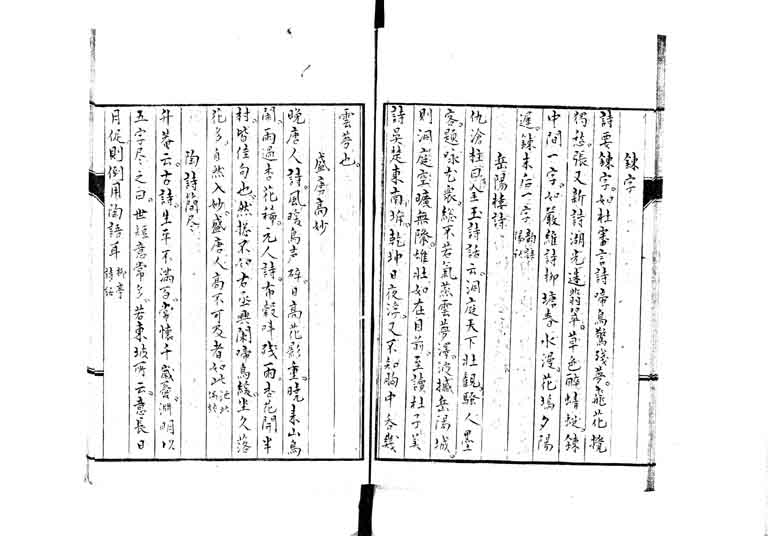 鍊字
詩要鍊字。如杜審言詩啼鳥驚殘夢。飛花攪
獨愁。張又新詩湖光迷翡翠。草色醉蜻蜓。鍊
中間一字。如嚴維詩柳塘春水漫。花塢夕陽
遲。鍊末后一字。
岳陽樓詩
仇滄柱曰。金玉詩話云。洞庭天下壯觀。騷人墨
客。題咏尤衆。終不若氣蒸雲夢澤。波撼岳陽城。
則洞庭空曠無際。雄壯如在目前。至讀杜子美
詩。吳楚東南坼。乾坤日夜浮。又不知胸中吞幾
雲夢也。
盛唐高妙
晚唐人詩。風暖鳥声碎。日高花影重。曉來山鳥
鬧。雨過杏花稀。元人詩。布穀叫殘雨。杏花開半
村。皆佳句也。然總不如右丞興闌啼鳥緩。坐久落
花多。自然入妙。盛唐人高不可及者如此。池北偶談
陶詩簡尽
升菴云。古詩。生年不滿百。常懷千歲憂。淵明以
五字尽之曰。世短意常多。若東坡所云。意長日
月促。則倒用陶語耳。柳亭詩話